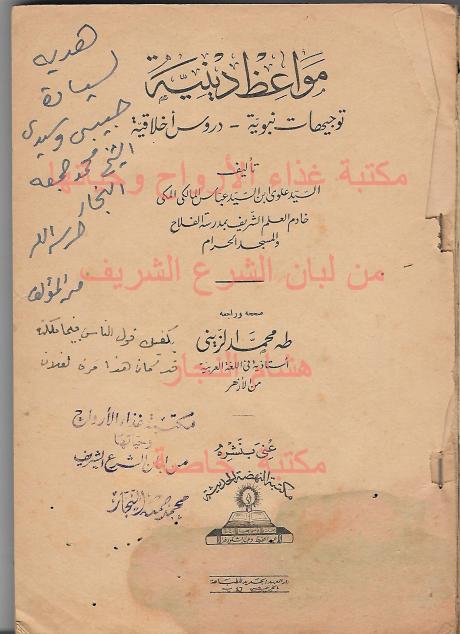 هديه
لسيادة
حبيبي وسيدي
الشيخ محمد جمعه
النجار
حرسه الله
من المؤلف
مواعظ دينية
توجيهات نبوية - دروس أخلاقية
تأليف
السيد علوي ابن السيد عباس المالكي المكي
خادم العلم الشريف بمدرسة الفلاح
والمسجد الحرام
صححه وراجعه
طه محمد الزيني
أستاذية في اللغة العربية
من الأزهر
يكفيك قول الناس فيما ملكته
قد كان هذا مرة لفلان
مكتبة غذاء الأرواح
وحياتها
من لبان الشرع الشريف
محمد جمعه النجار
عنى بنشره
مكتبة النهضة الحديثة
دار العهد الجديد للطباعة
مكتبة غذاء الأرواح وحياتها
من لبان الشرع الشريف
هشام النجار
مكتبة خاصة